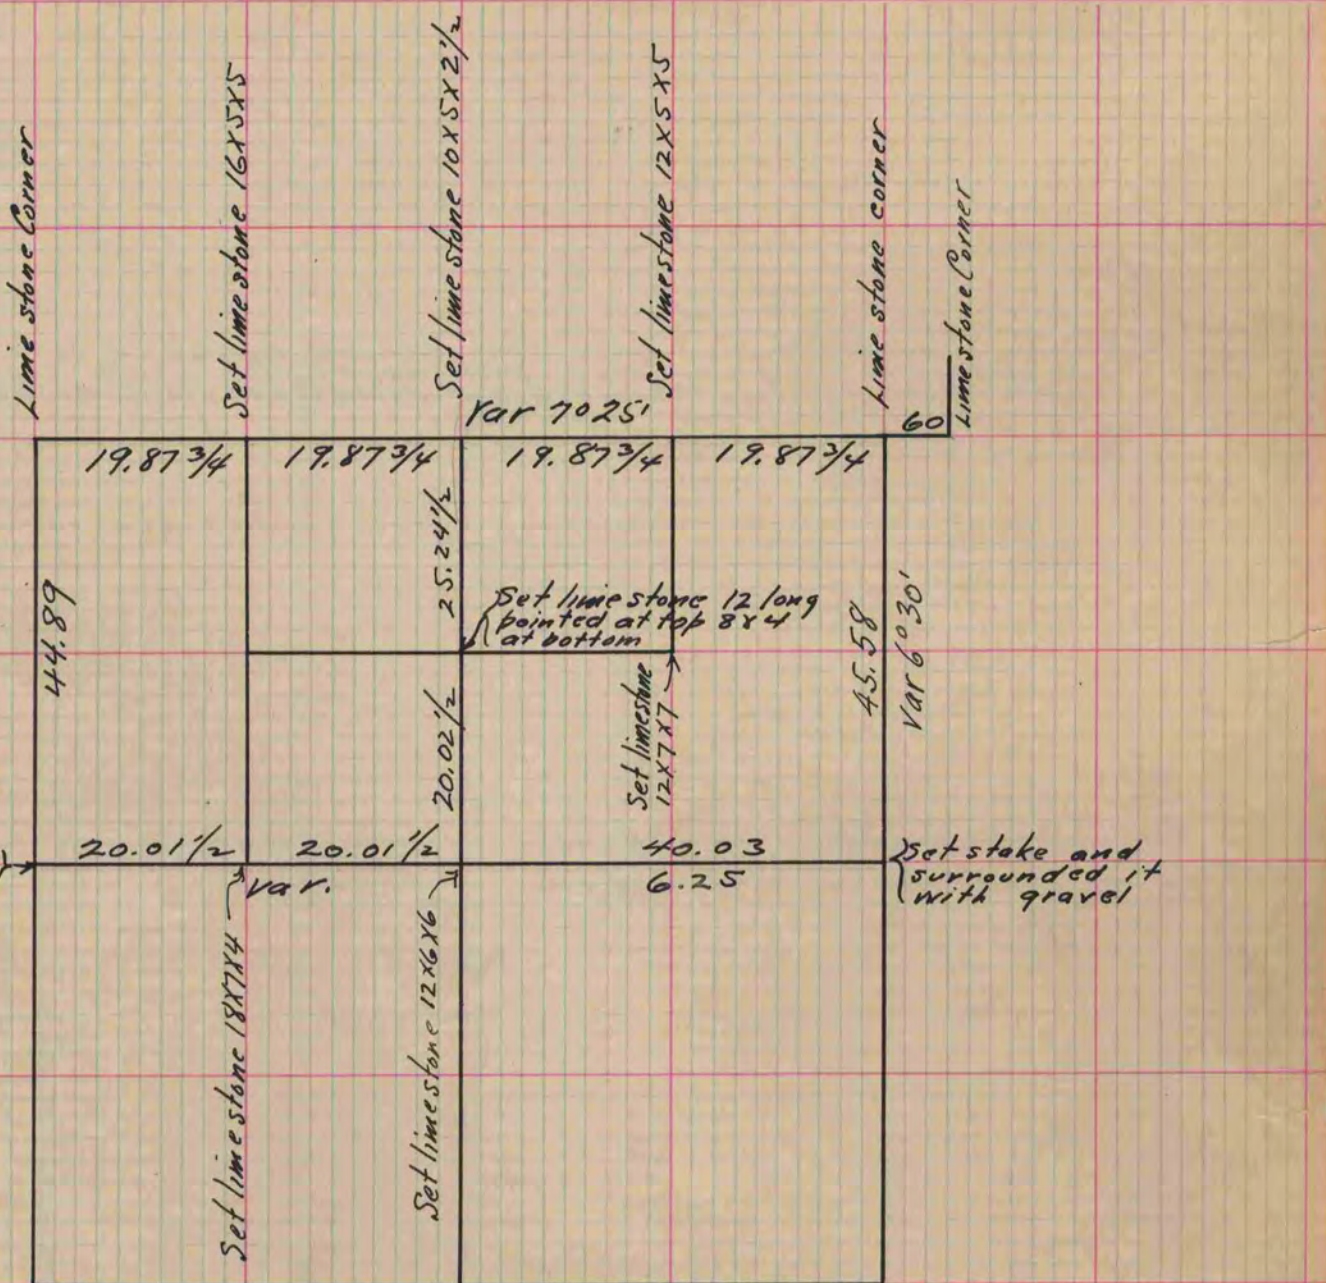 Lime stone Corner
Set lime stone 16X5X5
Set lime stone 10X5X2½
Set limestone 12X5X5
Lime stone corner
Limestone Corner
60
Var 7° 25'
19.87¾
19.87¾
19.87¾
19.87¾
44.89
25.24½
Set lime stone 12 long
pointed at top 8X4
at bottom
45.58
Var 6° 30'
20.02½
Set limestone
12X7X7
20.01½
20.01½
40.03
var.
6.25
Set stake and
surrounded it
with gravel
Set lime stone 18X7X4
Set limestone 12X6X6